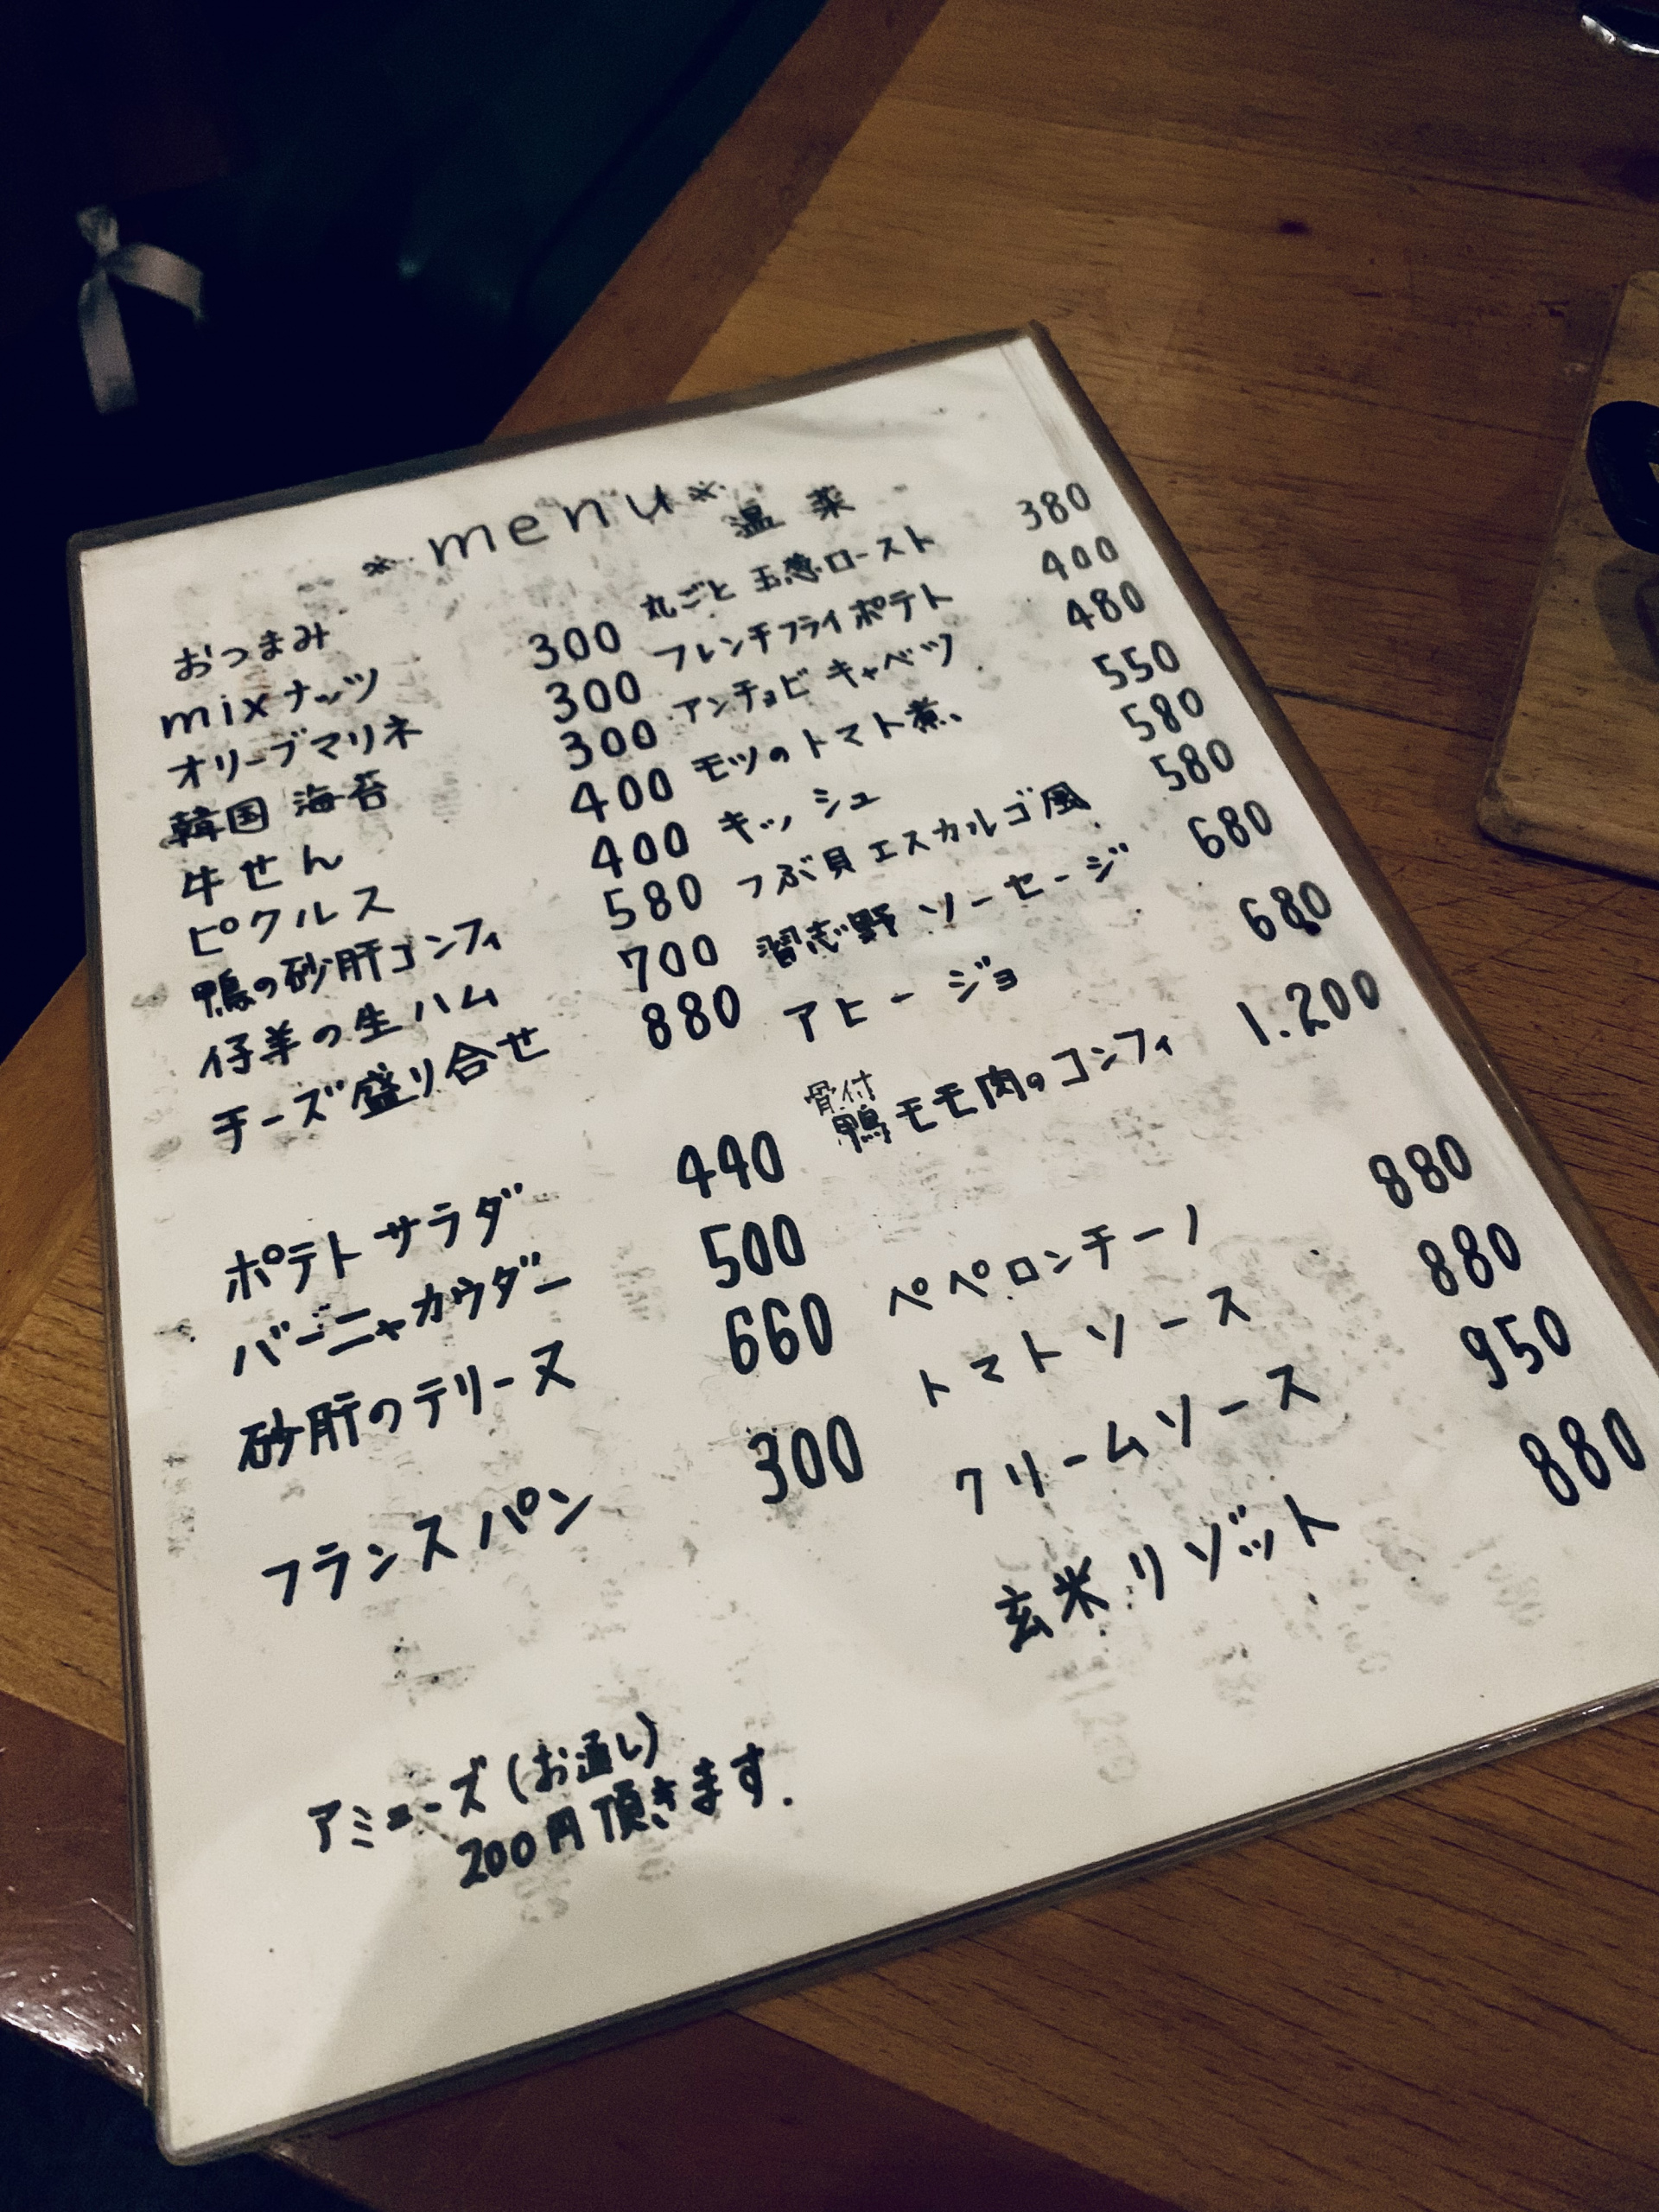 *menu*
おつまみ
mixナッツ 300
オリーブマリネ 300
韓国海苔 300
牛せん 400
ピクルス 400
鴨の砂肝コンフィ 580
仔羊の生ハム 700
チーズ盛り合せ 880
ポテトサラダ 440
バーニャカウダー 500
砂肝のテリーヌ 660
フランスパン 300
アミューズ(お通し)
200円頂きます.
温菜
丸ごと玉葱ロースト 380
フレンチフライポテト 400
アンチョビキャベツ 480
モツのトマト煮、 550
キッシュ 580
つぶ貝エスカルゴ風 580
習志野ソーセージ 680
アヒージョ 680
骨付
鴨モモ肉のコンフィ 1.200
ペペロンチーノ 880
トマトソース 880
クリームソース 950
玄米リゾット 880